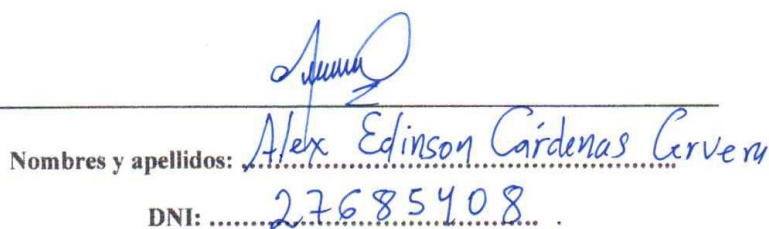 Nombres y apellidos: Alex Edinson Cárdenas
DNI: 27685408